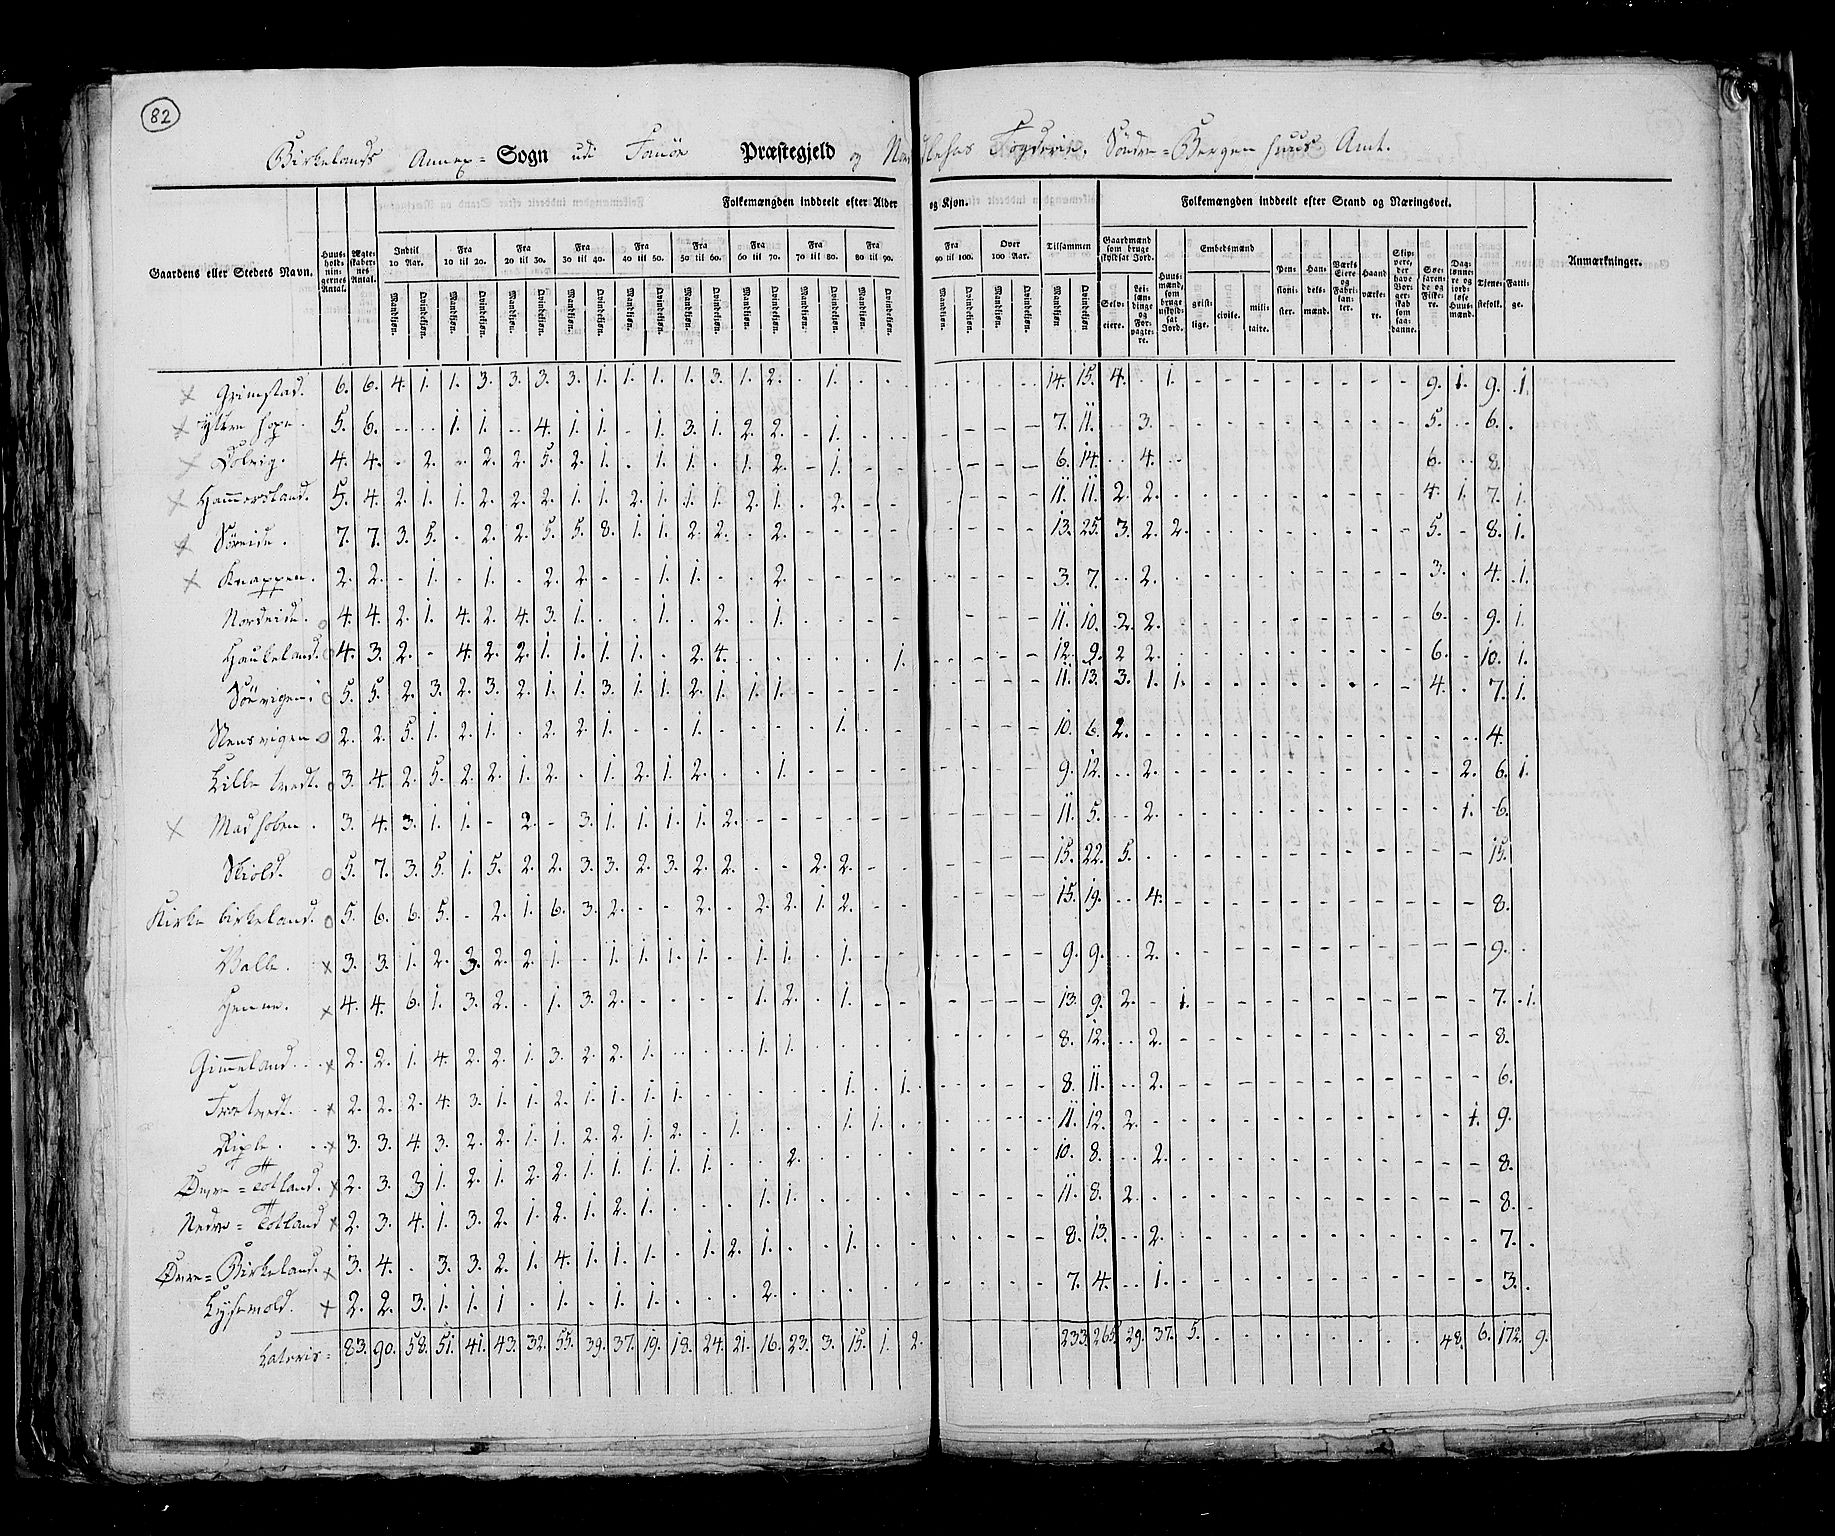 82
Birkelands Annex= Sogn udi Fanöe Præstegjeld og Nordhlehns Fogderie, Söndre=Bergenhuus Amt.
Folkemængden inddeelt efter Alder og Kjøn. Folkemængden inddeelt efter Stand og Næringsvei.
Gaardens eller Stedets Navn. Huus-holdnin-gernes Antal. Ægte-skaber-nes Antal. Indtil 10 Aar. Fra 10 til 20. Fra 20 til 30. Fra 30 til 40. Fra 40 til 50. Fra 50 til 60. Fra 60 til 70. Fra 70 til 80. Fra 80 til 90. Fra 90 til 100. Over 100 Aar. Tilsammen Gaardmænd som bruge skyldsat Jord. Huus-mænd, som bruge uskyld-sat Jord. Embedsmænd Pen-sioni-ster. Han-dels-mænd. Værks Eiere og Fabri-kan-ter. Haand værke-re. Skip-pere, der have Bor-ger-skab som saa-danne. Søe-faren-de og Fiske-re. Dag-lønne-re og jord-løse Huus-mænd. Tjene-stefolk. Fatti-ge. Anmærkninger.
Mandkjøn. Qvindekjøn. Selv-eiere. Lei-læn-dinge og For-pagte-re. geist-lige. civile. mili-taire.
Grimstad. 6. 6. 4. 1. 1. 3. 3. 3. 3. 1. 1. 1. 1. 3. 1. 2. . 1. 14. 15. 4. . 1. 9. 1. 9. 1.
Yttre hope. 5. 6. 1. 1. 4. 1. 1. 1. 3. 1. 2. 2. 1. 7. 11. 3. 5. 6.
Dolvig. 4. 4. 2. 2. 2. 5. 2. 1. 1. 1. 1. 2. 1. 6. 14. 4. 6. 8.
Hammersland. 5. 4. 2. 1. 1. 2. 2. 2. 1. 1. 2. 1. 1. 1. 2. 1. 2. 11. 11. 2. 2. 4. 1. 7. 1.
Söreide. 7. 7. 3. 5. 2. 2. 5. 5. 8. 1. 1. 2. 2. 2. 13. 25. 3. 2. 2. 5. 8. 1.
Knappen. 2. 2. 1. 1. 2. 2. 1. 1. 2. 3. 7. 2. 3. 4. 1.
Nordeide. 4. 4. 2. 1. 4. 2. 4. 3. 1. 1. 2. 1. 11. 10. 2. 2. 6. 9. 1.
Haukeland. 4. 3. 2. 4. 2. 2. 1. 1. 1. 1. 2. 4. 1. 12. 9. 2 2. 6. 10. 1.
Sörvigen 5. 5. 2. 3. 2. 3. 2. 1. 1. 3. 1. 1. 2. 1. 1. 1. 11. 13. 3. 1. 1. 4. 7. 1.
Stensvigen 2. 2. 5. 1. 2. 1. 2. 2. 1. 1. 1. 10. 6. 2. 4.
Lille tvedt. 3. 4. 2. 5. 2. 2. 1. 2. 1. 2. 1. 2. 1. 9. 12. 2. 2. 6. 1.
Madhoben. 3. 4. 3. 1. 1. 2. 3. 1. 1. 1. 1. 2. 11. 5. 2. 1. 6.
Skiold. 5. 7. 3. 5. 1. 5. 2. 2. 3. 3. 2. 3. 2. 2. 2. 2. 15. 22. 5. 15.
Kirke birkeland. 5. 6. 6. 5. 2. 1. 6. 3. 2. 2. 2. 2. 1. 2. 15. 19. 4. 8.
Valle. 3. 3. 1. 2. 3. 2. 2. 1. 1. 1. 1. 1. 1. 1. 1. 9. 9. 2. 9.
Henne. 4. 4. 6. 1. 3. 2. 1. 3. 2. 1. 2. 1. 13. 9. 2. 1. 7. 1.
Gimmeland. 2. 2. 1. 4. 2. 2. 1. 3. 2. 2. 1. 1. 1. 8. 12. 2. 8.
Frotvedt. 2. 2. 2. 4. 3. 1. 1. 2. 1. 1. 1. 1. 1. 1. 8. 11. 2. 6.
Riple. 3. 3. 4. 3. 2. 2. 1. 1. 2. 2. 1. 2. 1. 1. 1. 11. 12. 2. 1. 9.
Övre=Totland. 2. 3. 3 1. 2. 1. 2. 2. 1. 1. 1. 1. 1. 2. 10. 8. 2. 8.
Nedre=Totland 2. 3. 4. 1. 3. 2. 1. 2. 1. 2. 1. 1. 1. 11. 8. 2. 8.
Övre=Birkeland. 3. 4. 3. 3. 2. 1. 4. 1. 1. 1. 1. 2. 1. 1. 8. 13. 2. 7.
Lysevold. 2. 2. 3. 1. 1. 1 1. 1. 1. 2. 7. 4. 1. 3.
Lateris= 83. 90. 58. 51. 41. 43. 32. 55. 39. 37. 19. 18. 24. 21. 16. 23. 3. 15. 1. 2. 233. 265. 29. 37. 5. 48. 6. 172. 9.